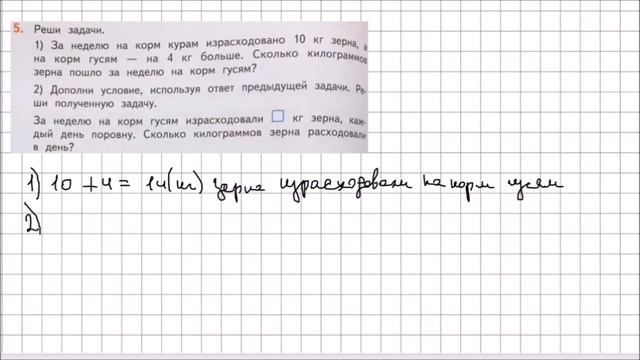 5. Реши задачи.
1) За неделю на корм курам израсходовано 10 кг зерна, а
на корм гусям — на 4 кг больше. Сколько килограммов
зерна пошло за неделю на корм гусям?
2) Дополни условие, используя ответ предыдущей задачи. Ре-
ши полученную задачу.
За неделю на корм гусям израсходовали □ кг зерна, каж-
дый день поровну. Сколько килограммов зерна расходовали
в день?
1) 10 + 4 = 14 (кг) зерна израсходовали на корм гусям
2)